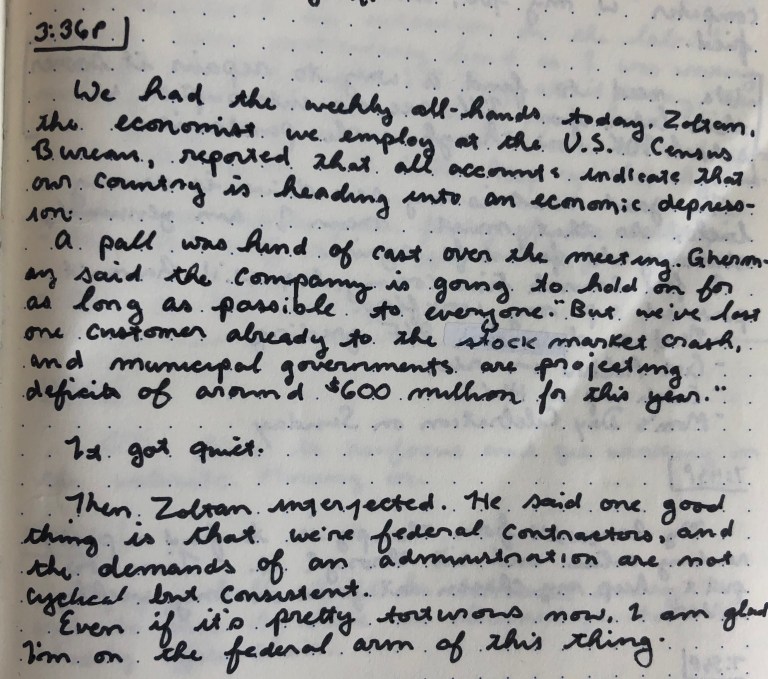 3:36P
We had the weekly all-hands today. Zoltan,
the economist we employ at the U.S. Census
Bureau, reported that all accounts indicate that
our country is heading into an economic depress-
ion.
A pall was kind of cast over the meeting. Gherom-
ey said the company is going to hold on for
as long as possible to everyone. "But we've lost
one customer already to the stock market crash,
and municipal governments are projecting
deficits of around $600 million for this year."
It got quiet.
Then Zoltan interjected. He said one good
thing is that we're federal contractors, and
the demands of an administration are not
cyclical but consistent.
Even if it's pretty torturous now, I am glad
I'm on the federal arm of this thing.